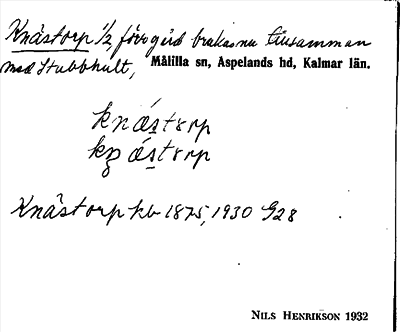 Knåstorp 1/2, förr gård brukas nu tillsamman
med Stubbhult, Målilla sn, Aspelands hd, Kalmar län.
Knåstorp kb 1875, 1930 G28
NILS HENRIKSON 1932